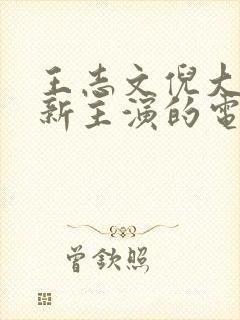 王志文倪大
新主演的電
曾欽照